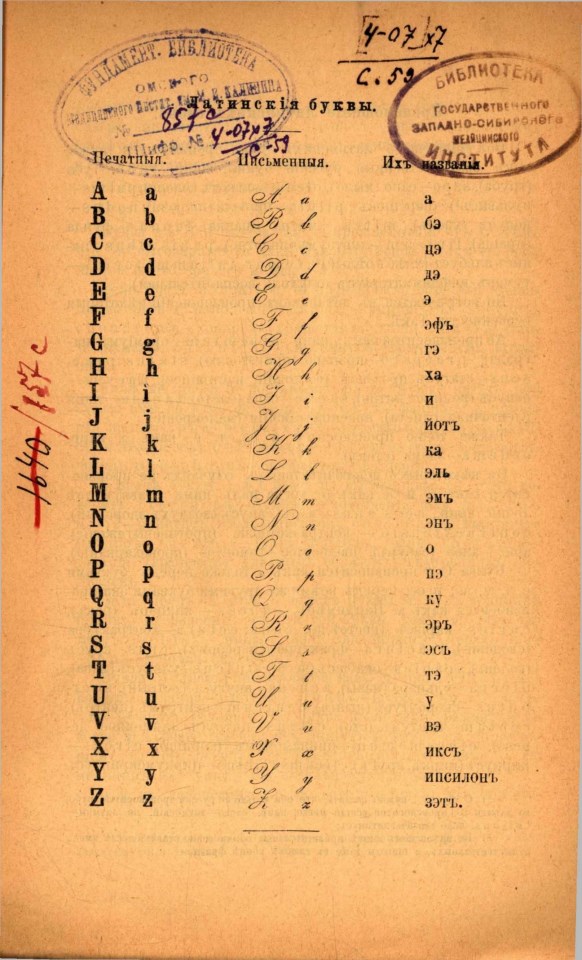 [4-07]х7
С.59
ФУНДАМЕНТ. БИБЛИОТЕКА
ОМСКОГО
№ 857с
Шифр. № 4-07х7
С-59
БИБЛИОТЕКА
ГОСУДАРСТВЕННОГО
ЗАПАДНО-СИБИРСКОГО
МЕДИЦИНСКОГО
ИНСТИТУТА
Латинскія буквы.
Печатныя. Письменныя. Ихъ названія.
A a A a а
B b B b бэ
C c C c цэ
D d D d дэ
E e E e э
F f F f эфъ
G g G g гэ
H h H h ха
I i I i и
J j J j йотъ
K k K k ка
L l L l эль
M m M m эмъ
N n N n энъ
O o O o о
P p P p пэ
Q q Q q ку
R r R r эръ
S s S s эсъ
T t T t тэ
U u U u у
V v V v вэ
X x X x иксъ
Y y Y y ипсилонъ
Z z Z z зэтъ.
1640/857с